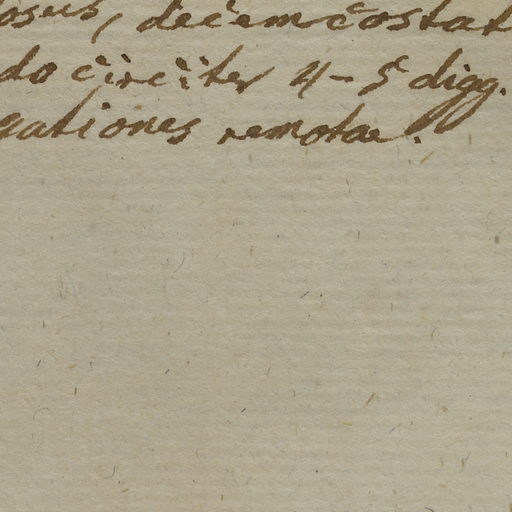 osus, decemcostat
do circiter 4-5 digg.
gationes remotae.